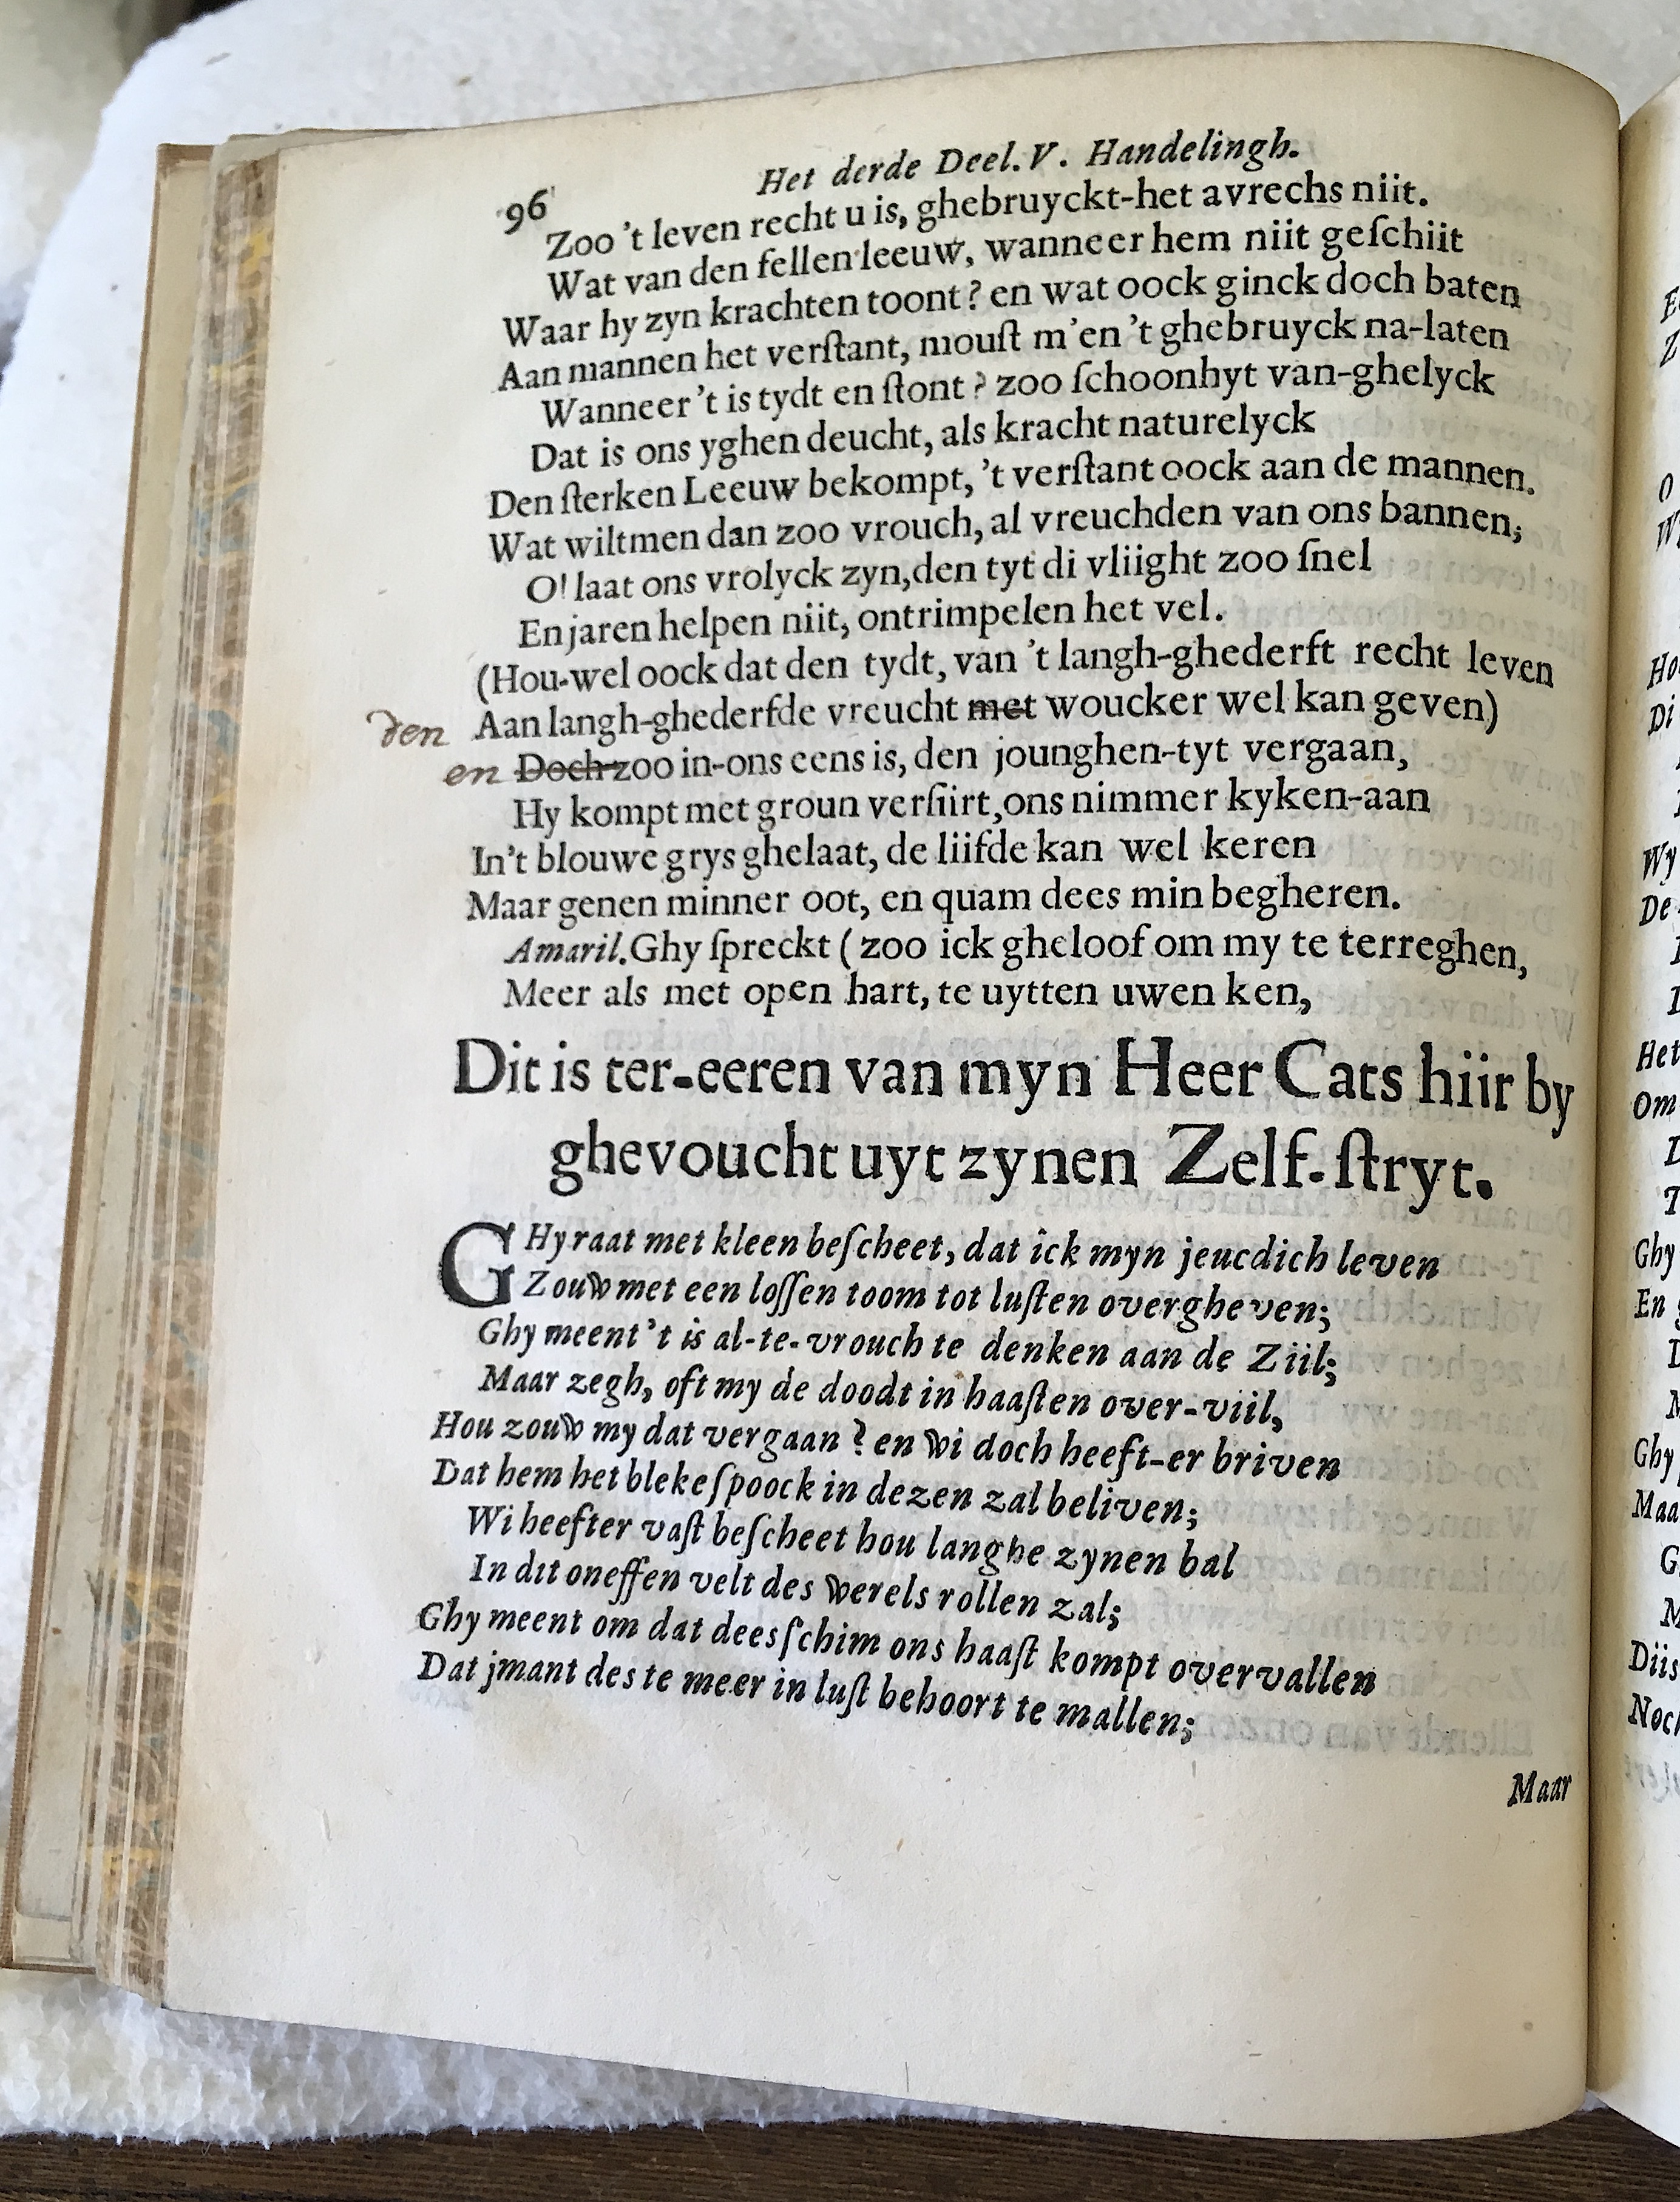 96 Het derde Deel. V. Handelingh.
Zoo 't leven recht u is, ghebruyckt-het avrechs niit.
Wat van den fellen leeuw, wanneer hem niit geſchiit
Waar hy zyn krachten toont? en wat oock ginck doch baten
Aan mannen het verſtant, mouſt m'en 't ghebruyck na-laten
Wanneer 't is tydt en ſtont? zoo ſchoonhyt van-ghelyck
Dat is ons yghen deucht, als kracht naturelyck
Den ſterken Leeuw bekompt, 't verſtant oock aan de mannen.
Wat wiltmen dan zoo vrouch, al vreuchden van ons bannen;
O! laat ons vrolyck zyn, den tyt di vliight zoo ſnel
En jaren helpen niit, ontrimpelen het vel.
(Hou-wel oock dat den tydt, van 't langh-ghederft recht leven
den Aan langh-ghederfde vreucht met woucker wel kan geven)
en Doch zoo in-ons eens is, den jounghen-tyt vergaan,
Hy kompt met groun verſiirt, ons nimmer kyken-aan
In't blouwe grys ghelaat, de liifde kan wel keren
Maar genen minner oot, en quam dees min begheren.
Amaril. Ghy ſpreckt ( zoo ick gheloof om my te terreghen,
Meer als met open hart, te uytten uwen ken,
Dit is ter-eeren van myn Heer Cats hiir by
ghevoucht uyt zynen Zelf-ſtryt.
GHy raat met kleen beſcheet, dat ick myn jeucdich leven
Zouw met een loſſen toom tot luſten overgheven;
Ghy meent 't is al-te-vrouch te denken aan de Ziil;
Maar zegh, oft my de doodt in haaſten over-viil,
Hou zouw my dat vergaan? en wi doch heeft-er briven
Dat hem het bleke ſpoock in dezen zal beliven;
Wi heefter vaſt beſcheet hou langhe zynen bal
In dit oneffen velt des werels rollen zal;
Ghy meent om dat dees ſchim ons haaſt kompt overvallen
Dat jmant des te meer in luſt behoort te mallen;
Maar